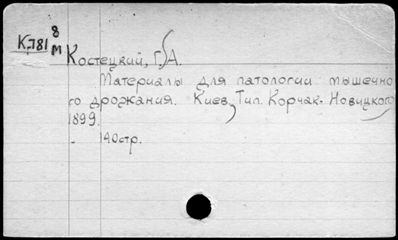 8
К781
м
Костецкий, Г. А.
Материалы для патологии мышечно
го дрожания. Киев, Тип. Корчак-Новицкого
1899.
- 140стр.